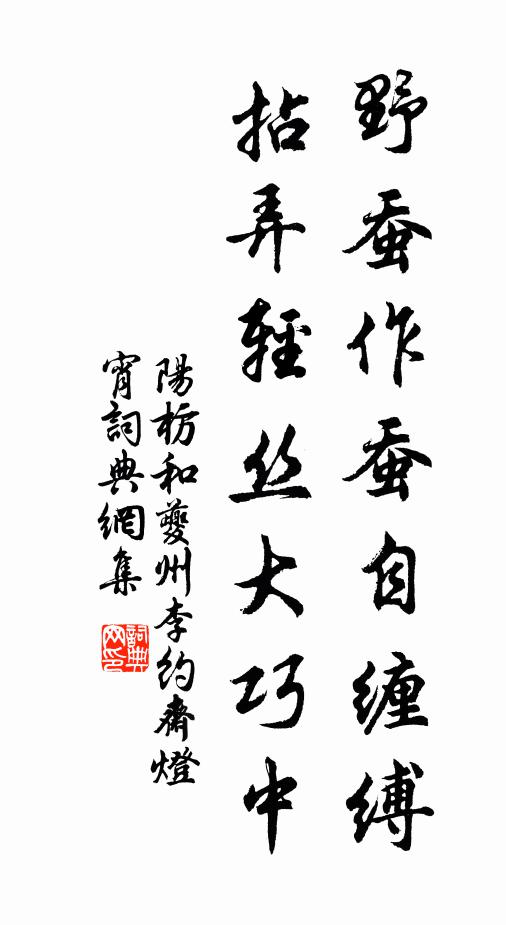 野蚕作蚕自缠缚
拈弄輕丝大巧中
陽枋和夔州李约齋燈
宵詞典網集
詞典
网印